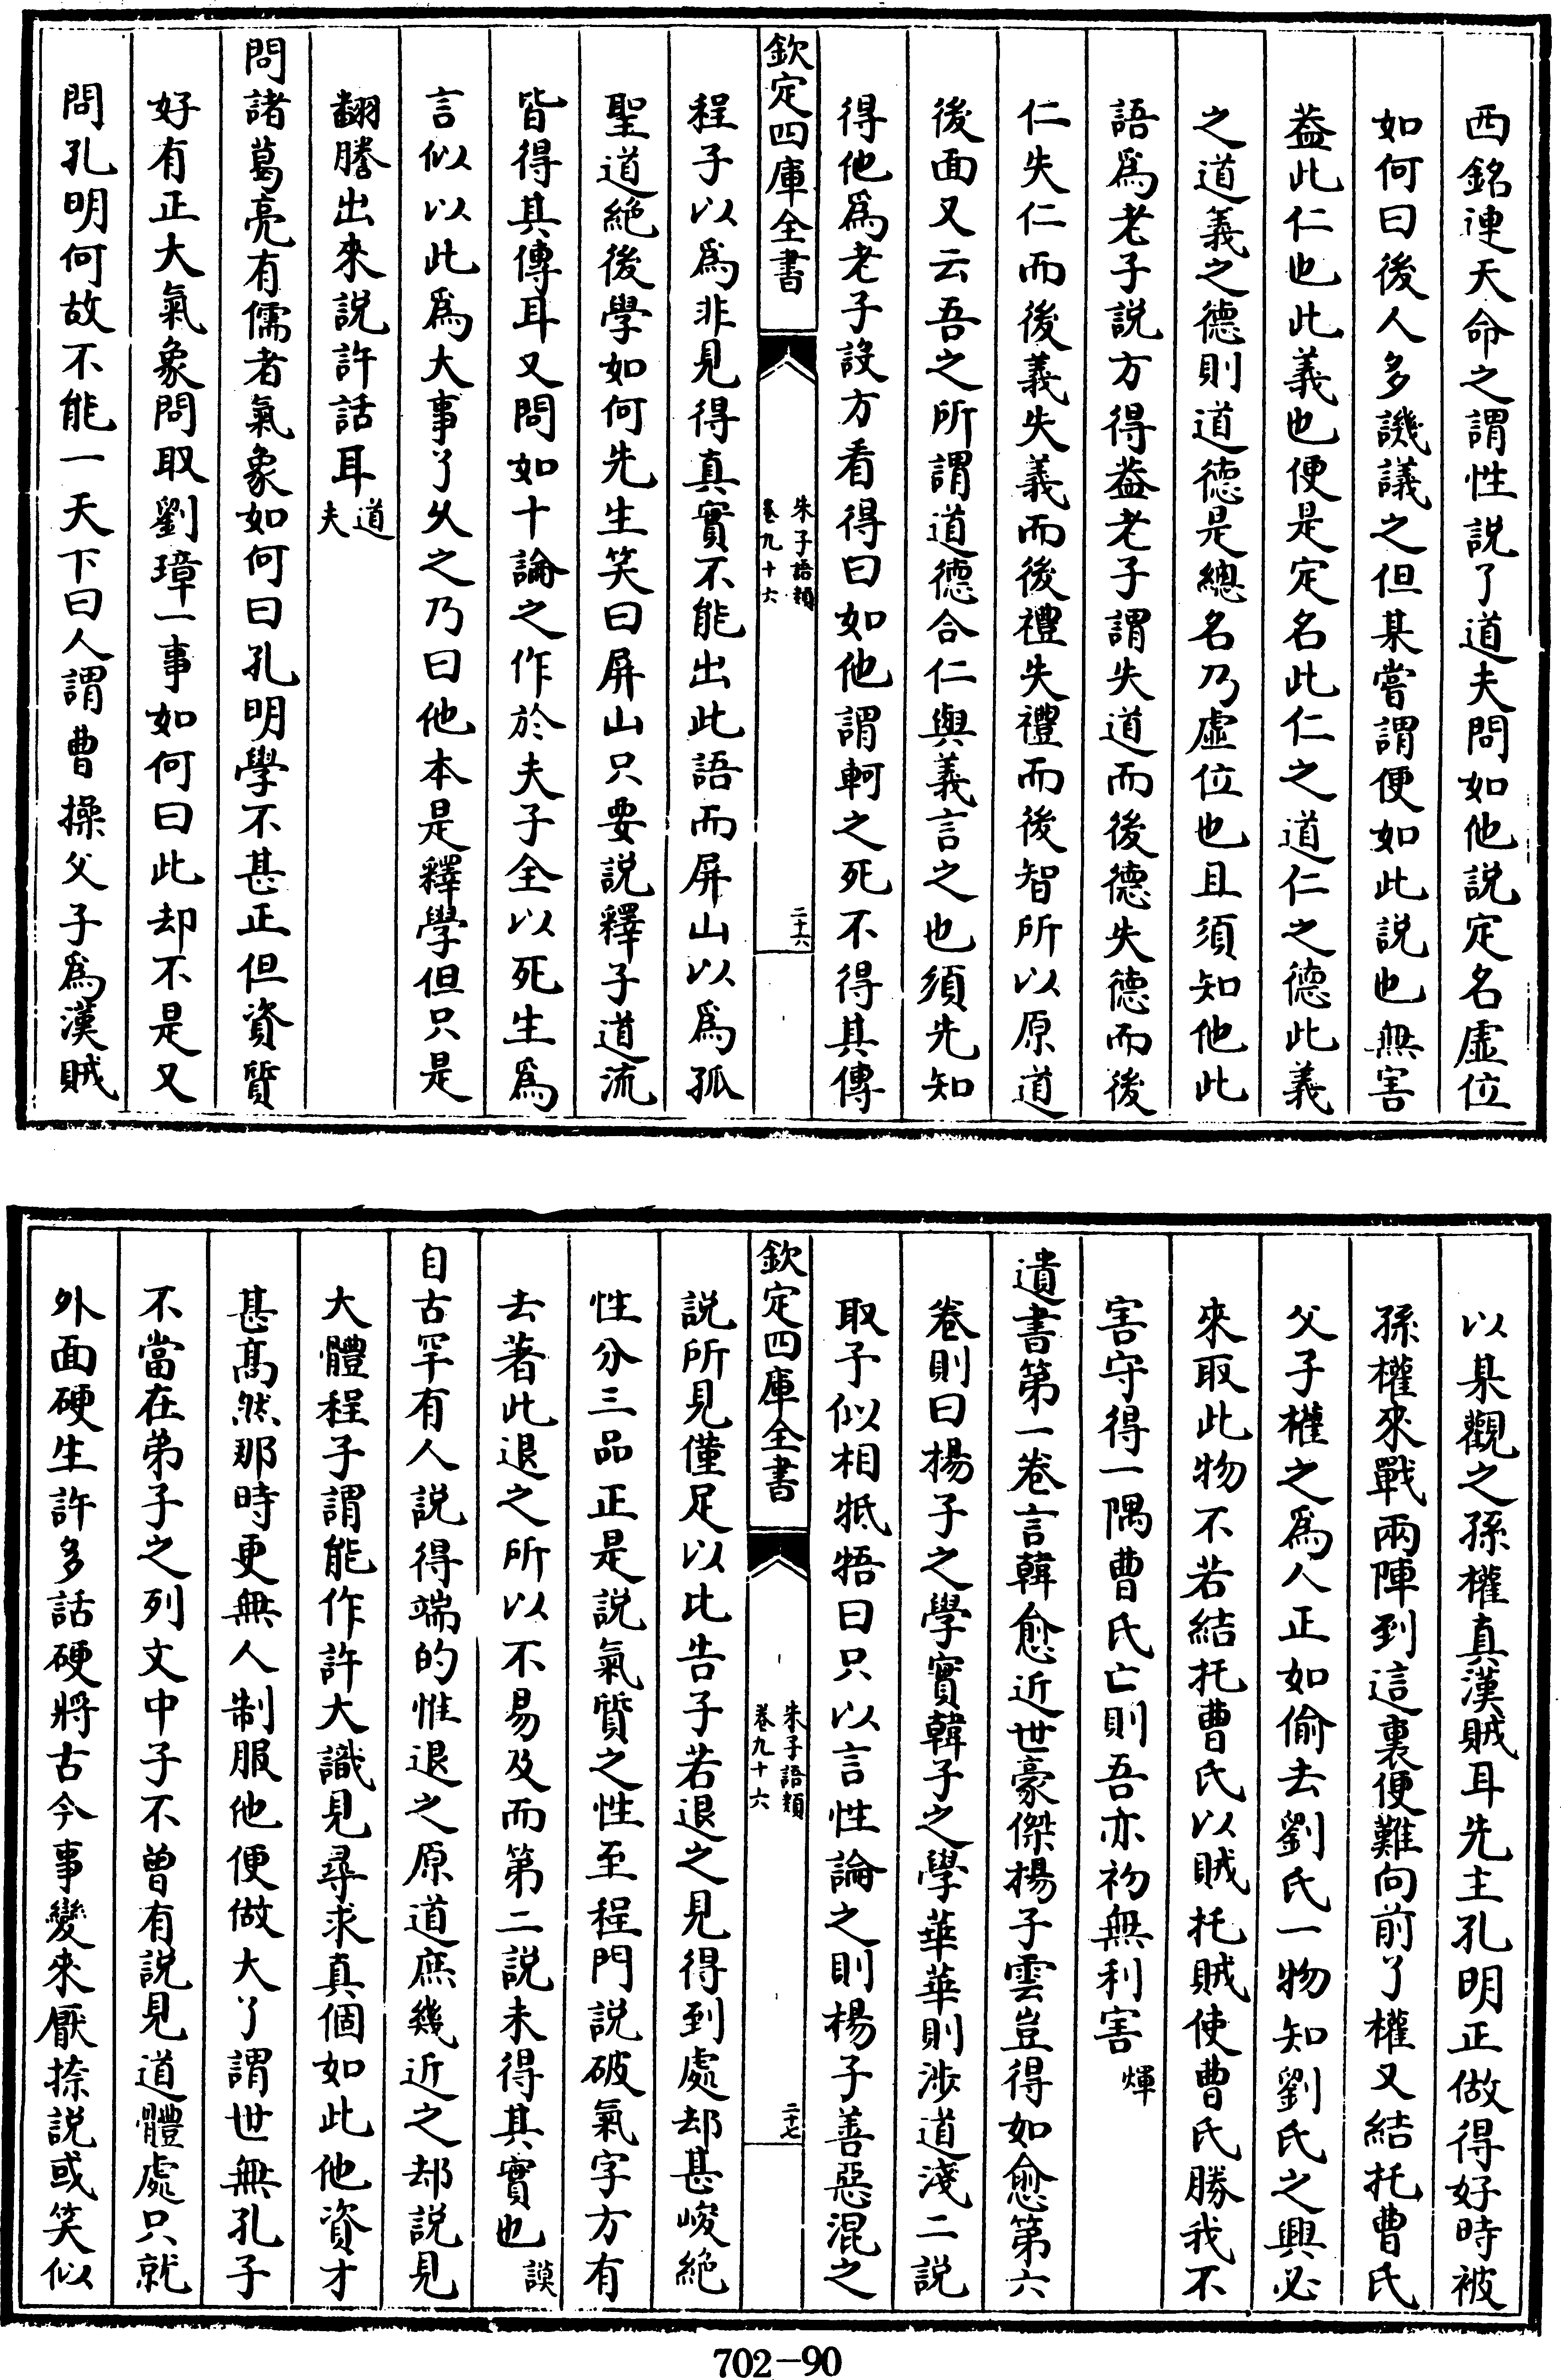 西銘連天命之謂性説了道夫問如他説定名虛位
如何曰後人多譏議之但某嘗謂便如此説也無害
葢此仁也此義也便是定名此仁之道仁之德此義
之道義之德則道德是總名乃虛位也且須知他此
語爲老子説方得葢老子謂失道而後德失德而後
仁失仁而後義失義而後禮失禮而後智所以原道
後面又云吾之所謂道德合仁與義言之也須先知
得他爲老子設方看得曰如他謂軻之死不得其傳
欽定四庫全書
朱子語類
卷九十六
二十六
程子以爲非見得真實不能出此語而屏山以爲孤
聖道絶後學如何先生笑曰屏山只要説釋子道流
皆得其傳耳又問如十論之作於夫子全以死生爲
言似以此爲大事了乆之乃曰他本是釋學但只是
翻謄出來説許話耳道
夫
問諸葛亮有儒者氣象如何曰孔明學不甚正但資質
好有正大氣象問取劉璋一事如何曰此却不是又
問孔明何故不能一天下曰人謂曹操父子爲漢賊
以某觀之孫權真漢賊耳先主孔明正做得好時被
孫權來戰兩陣到這裏便難向前了權又結托曹氏
父子權之爲人正如偷去劉氏一物知劉氏之興必
來取此物不若結托曹氏以賊托賊使曹氏勝我不
害守得一隅曹氏亡則吾亦初無利害煇
遺書第一卷言韓愈近世豪傑揚子雲豈得如愈第六
卷則曰揚子之學實韓子之學華華則涉道淺二説
取予似相牴牾曰只以言性論之則楊子善惡混之
欽定四庫全書
朱子語類
卷九十六
二十七
説所見僅足以比告子若退之見得到處却甚峻絶
性分三品正是説氣質之性至程門説破氣字方有
去著此退之所以不易及而第二説未得其實也謨
自古罕有人説得端的惟退之原道庶幾近之却説見
大體程子謂能作許大識見尋求真個如此他資才
甚髙然那時更無人制服他便做大了謂世無孔子
不當在弟子之列文中子不曾有説見道體處只就
外面硬生許多話硬將古今事變來厭捺説或笑似
702-90